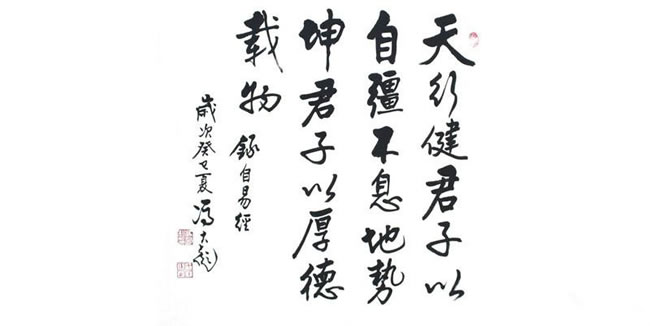 天行健君子以
自疆不息地勢
坤君子以厚德
載物
錄自易經
歲次癸巳夏馮大彪